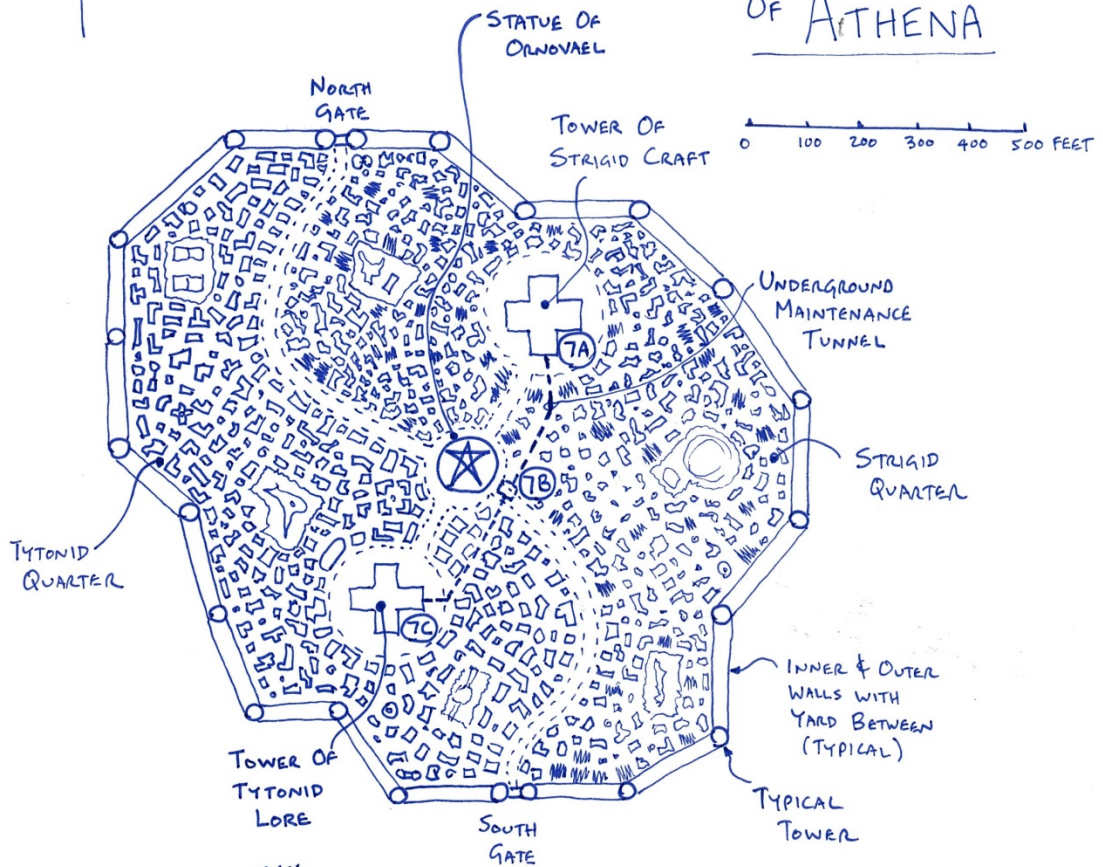 STATUE OF
ORNOVAEL
OF ATHENA
NORTH
GATE
TOWER OF
STRIGID CRAFT
0 100 200 300 400 500 FEET
UNDERGROUND
MAINTENANCE
TUNNEL
7A
STRIGID
QUARTER
7B
TYTONID
QUARTER
7C
INNER & OUTER
WALLS WITH
YARD BETWEEN
(TYPICAL)
TOWER OF
TYTONID
LORE
TYPICAL
TOWER
SOUTH
GATE